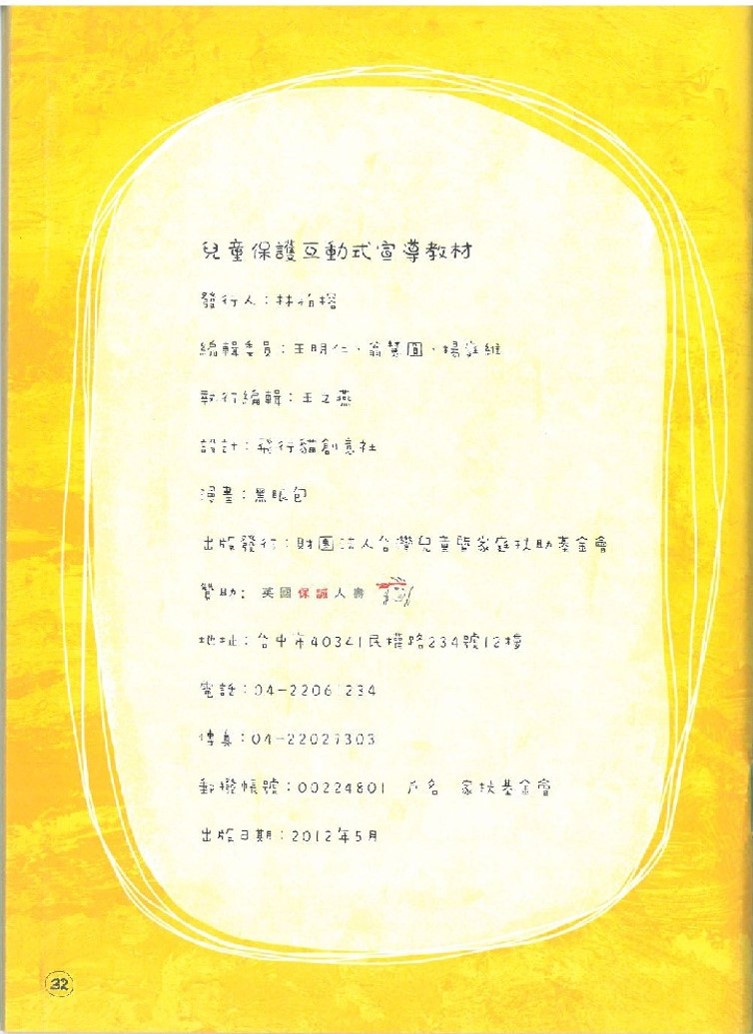 兒童保護互動式宣導教材
發行人：林柏榕
編輯委員：王明仁、翁慧圓、楊庭維
執行編輯：王之燕
設計：飛行貓創意社
漫畫：黑眼包
出版發行：財團法人台灣兒童暨家庭扶助基金會
贊助：英國保誠人壽
地址：台中市40341民權路234號12樓
電話：04-22061234
傳真：04-22027303
郵撥帳號：00224801 戶名 家扶基金會
出版日期：2012年5月
32